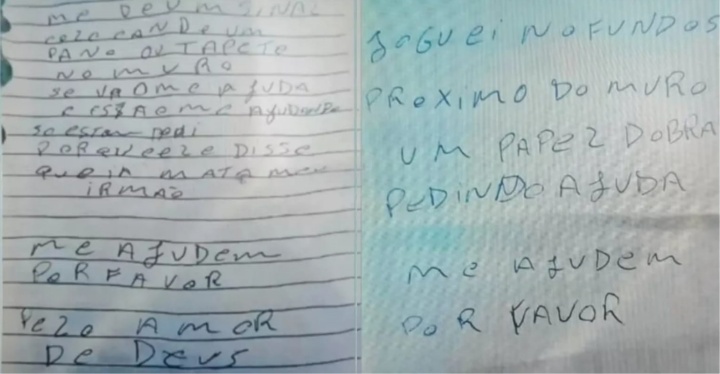 ME DEU M SINAL
COLOCANDE UM
PANO OU TAPETE
NO MURO
SE VÃO ME AJUDA
SO ESTOU PEDI
PORQUE ELE DISSE
QUE IA MATA MEU
IRMÃO
ME AJUDEM
POR FAVOR
PELO AMOR
DE DEUS
JOGUEI NO FUNDOS
PROXIMO DO MURO
UM PAPEL DOBRA
PEDINDO AJUDA
ME AJUDEM
POR FAVOR